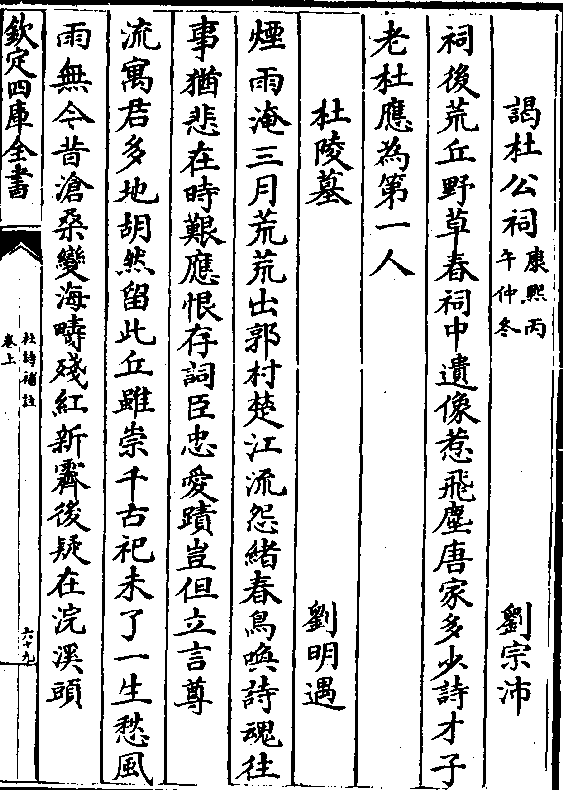 謁杜公祠 康熙丙
午仲冬 劉宗沛
祠後荒丘野草春祠中遺像惹飛塵唐家多少詩才子
老杜應為第一人
杜陵墓 劉明遇
煙雨淹三月荒荒出郭村楚江流怨緒春鳥喚詩魂往
事猶悲在時艱應恨存詞臣忠愛蹟豈但立言尊
流寓君多地胡然留此丘雖崇千古祀未了一生愁風
雨無今昔滄桑變海疇殘紅新霽後疑在浣溪頭
欽定四庫全書
杜詩補註
卷上
六十九